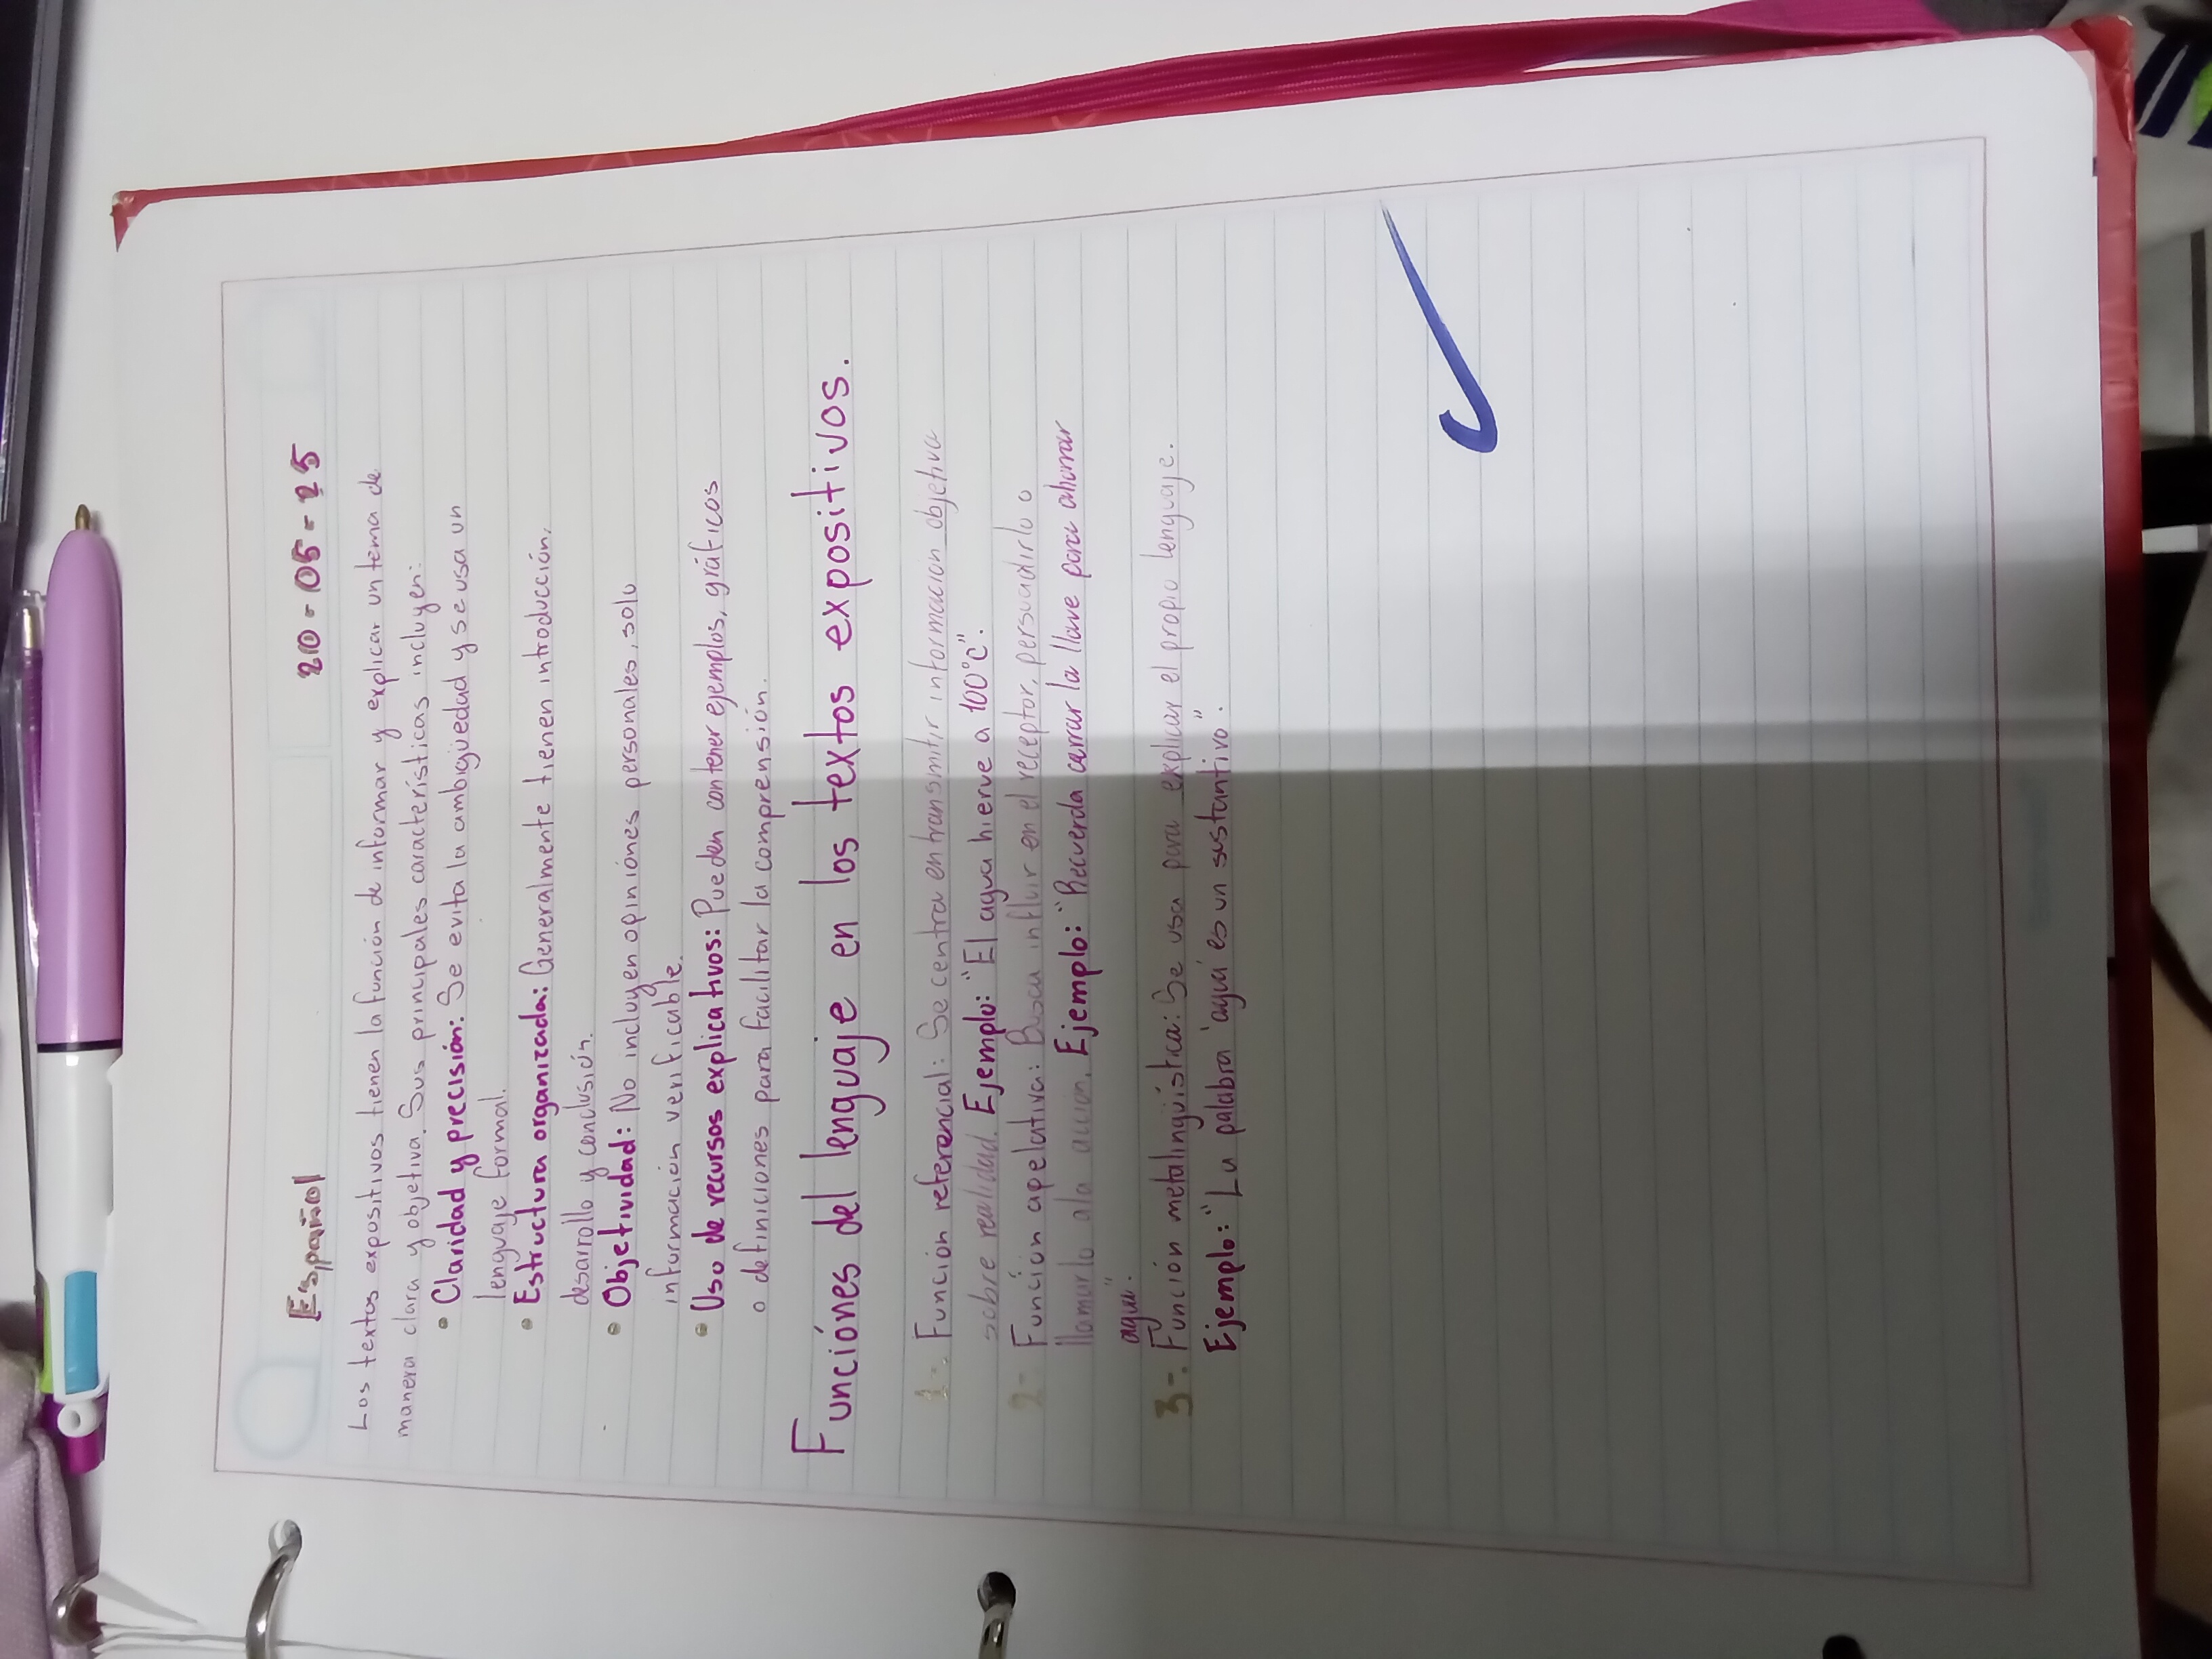 Español 20-05-25
Los textos expositivos tienen la función de informar y explicar un tema de
manera clara y objetiva. Sus principales características incluyen:
• Claridad y precisión: Se evita la ambigüedad y se usa un
lenguaje formal.
• Estructura organizada: Generalmente tienen introducción,
desarrollo y conclusión.
• Objetividad: No incluyen opiniones personales, solo
información verificable.
• Uso de recursos explicativos: Pueden contener ejemplos, gráficos
o definiciones para facilitar la comprensión.
Funciones del lenguaje en los textos expositivos.
1-. Función referencial: Se centra en transmitir informacion objetiva
sobre realidad. Ejemplo: "El agua hierve a 100°C".
2- Función apelativa: Busca influir en el receptor, persuadirlo o
llamarlo a la accion. Ejemplo: "Recuerda cerrar la llave para ahorrar
agua".
3-. Función metalingüística: Se usa para explicar el propio lenguaje.
Ejemplo: "La palabra 'agua' es un sustantivo".